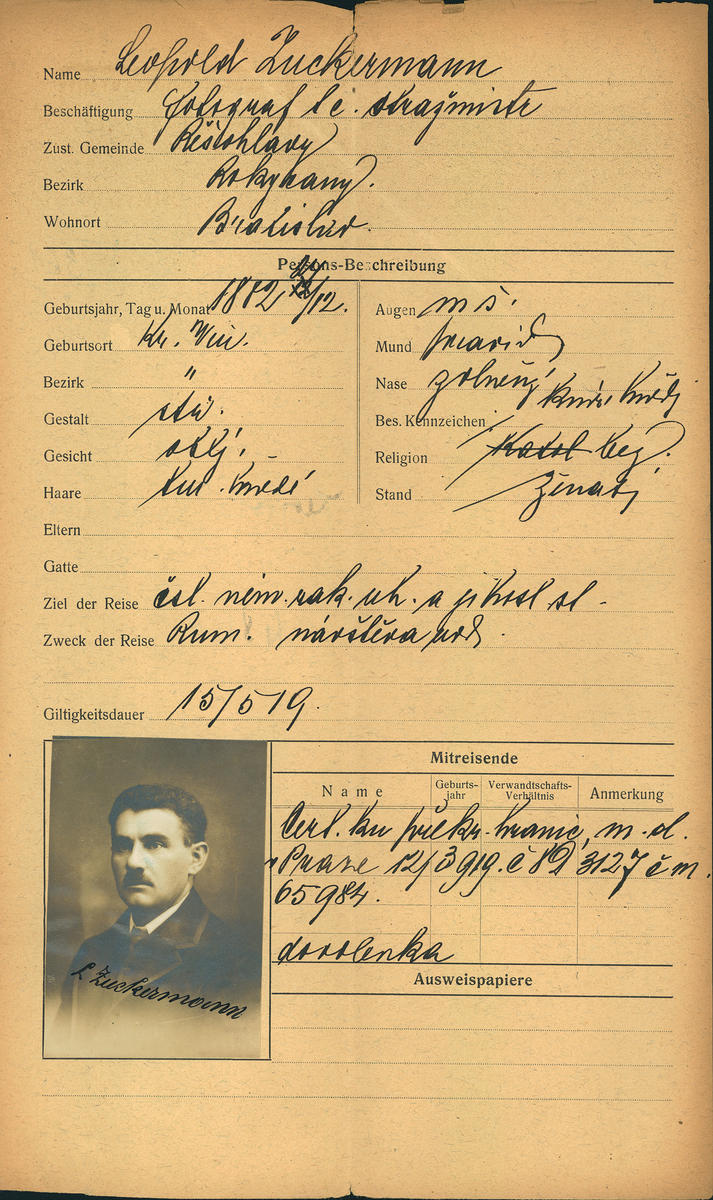 Name Leopold Zuckermann
Beschäftigung fotograf t. č. stražmistr
Zust. Gemeinde
Bezirk Rokycany.
Wohnort Bratislav.
Persons-Beschreibung
Geburtsjahr, Tag u. Monat 1882 /12.
Geburtsort Kr. Vin.
Bezirk "
Gestalt stř.
Gesicht obl.
Haare
Augen
Mund pravid.
Nase
Bes. Kennzeichen
Religion Katol bez.
Stand ženatý
Eltern
Gatte
Ziel der Reise čsl. něm. rak. uh. a jihosl. st.
Zweck der Reise Rum. návštěva
Giltigkeitsdauer 15/5 19.
Mitreisende
Name Geburts-jahr Verwandtschafts-Verhältnis Anmerkung
Cert. ku překr. hranic, m. d.
v Praze 12/3 919. č 89 3127 č m.
65984.
dovolenka
Ausweispapiere
L Zuckermann